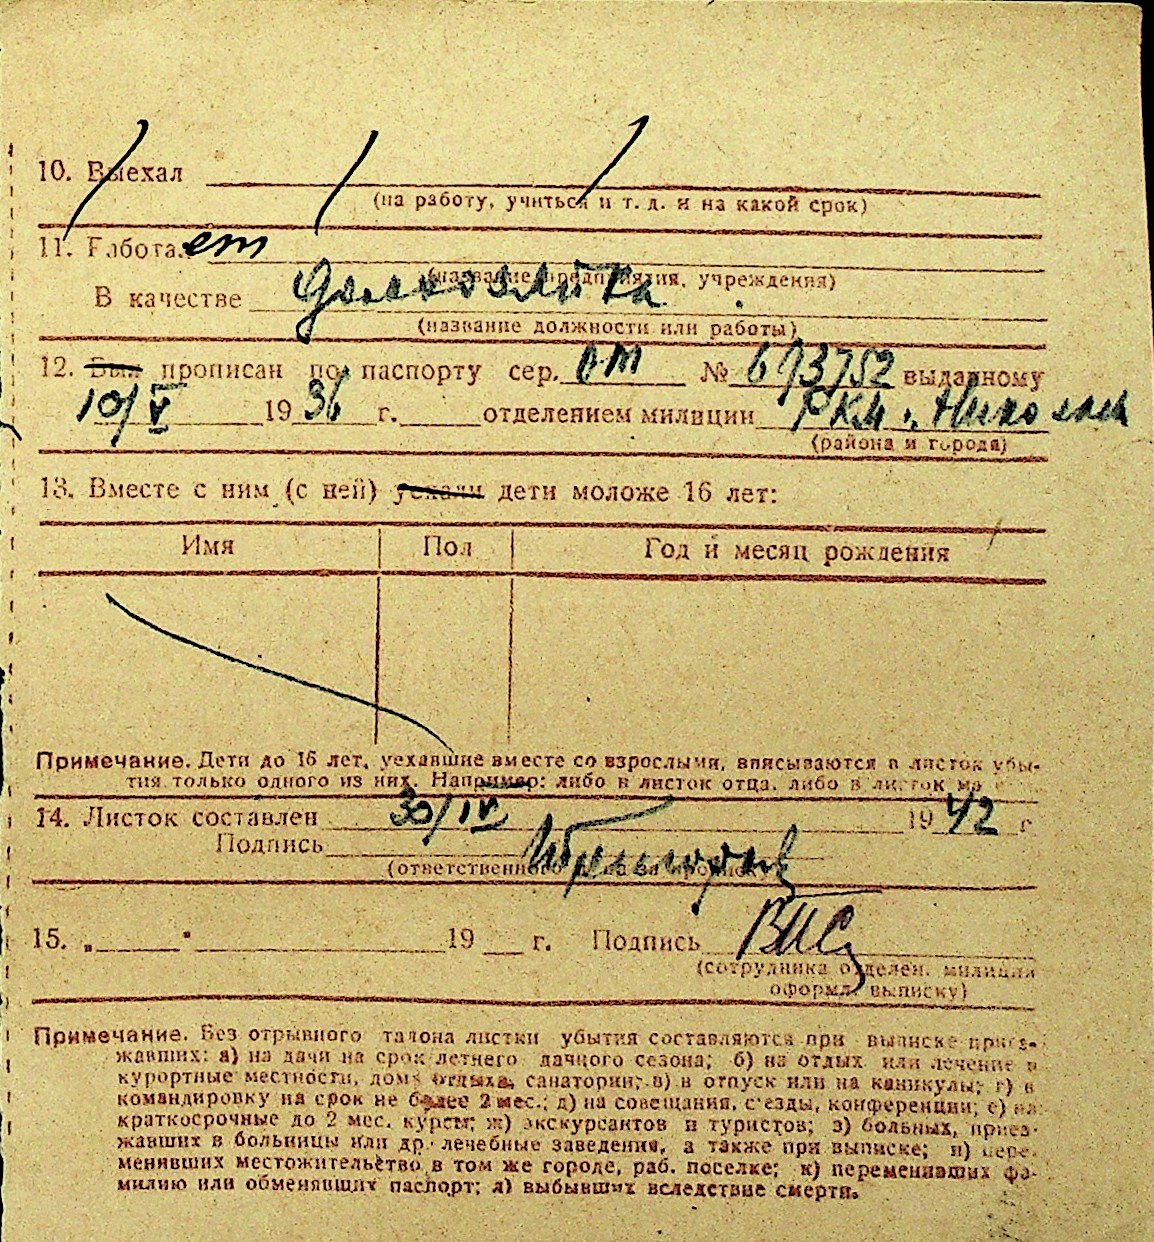 10. Выехал
(на работу, учиться и т. д. и на какой срок)
11. Работает
(название предприятия, учреждения)
В качестве домохозяйка
(название должности или работы)
12. Был прописан по паспорту сер. № 673752 выданному
10/V 1936 г. отделением милиции РКМ г. Николаев
(района и города)
13. Вместе с ним (с ней) уехали дети моложе 16 лет:
Имя Пол Год и месяц рождения
Примечание. Дети до 16 лет, уехавшие вместе со взрослыми, вписываются в листок убы-
тия только одного из них. Например: либо в листок отца, либо в листок
14. Листок составлен 30/IV 1942 г
Подпись
(ответственного за прописку)
15. „ " 19 г. Подпись
(сотрудника отделен. милиции
оформл. выписку)
Примечание. Без отрывного талона листки убытия составляются при выписке приез-
жавших: а) на дачи на срок летнего дачного сезона; б) на отдых или лечение в
курортные местности, дома отдыха, санатории; в) в отпуск или на каникулы; г) в
командировку на срок не более 2 мес.; д) на совещания, с'езды, конференции; е) на
краткосрочные до 2 мес. курсы; ж) экскурсантов и туристов; з) больных, приез-
жавших в больницы или др. лечебные заведения, а также при выписке; и) пере-
менивших местожительство в том же городе, раб. поселке; к) переменивших фа-
милию или обменявших паспорт; л) выбывших вследствие смерти.